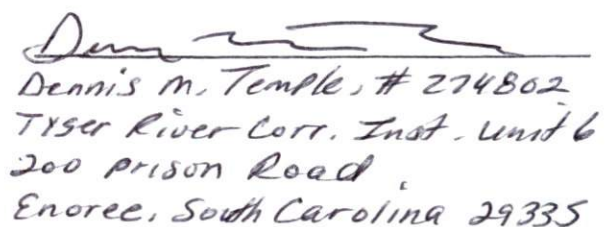 Dennis M. Temple, # 274802
Tyger River Corr. Inst. Unit 6
200 Prison Road
Enoree, South Carolina 29335